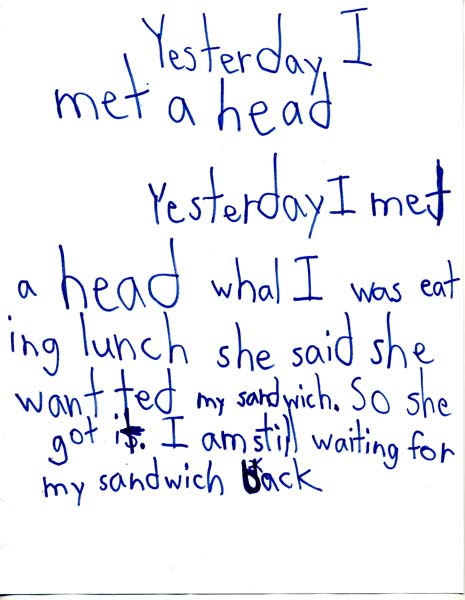 Yesterday I
met a head
Yesterday I met
a head whal I was eat
ing lunch she said she
want ted my sandwich. So she
got it. I am still waiting for
my sandwich back